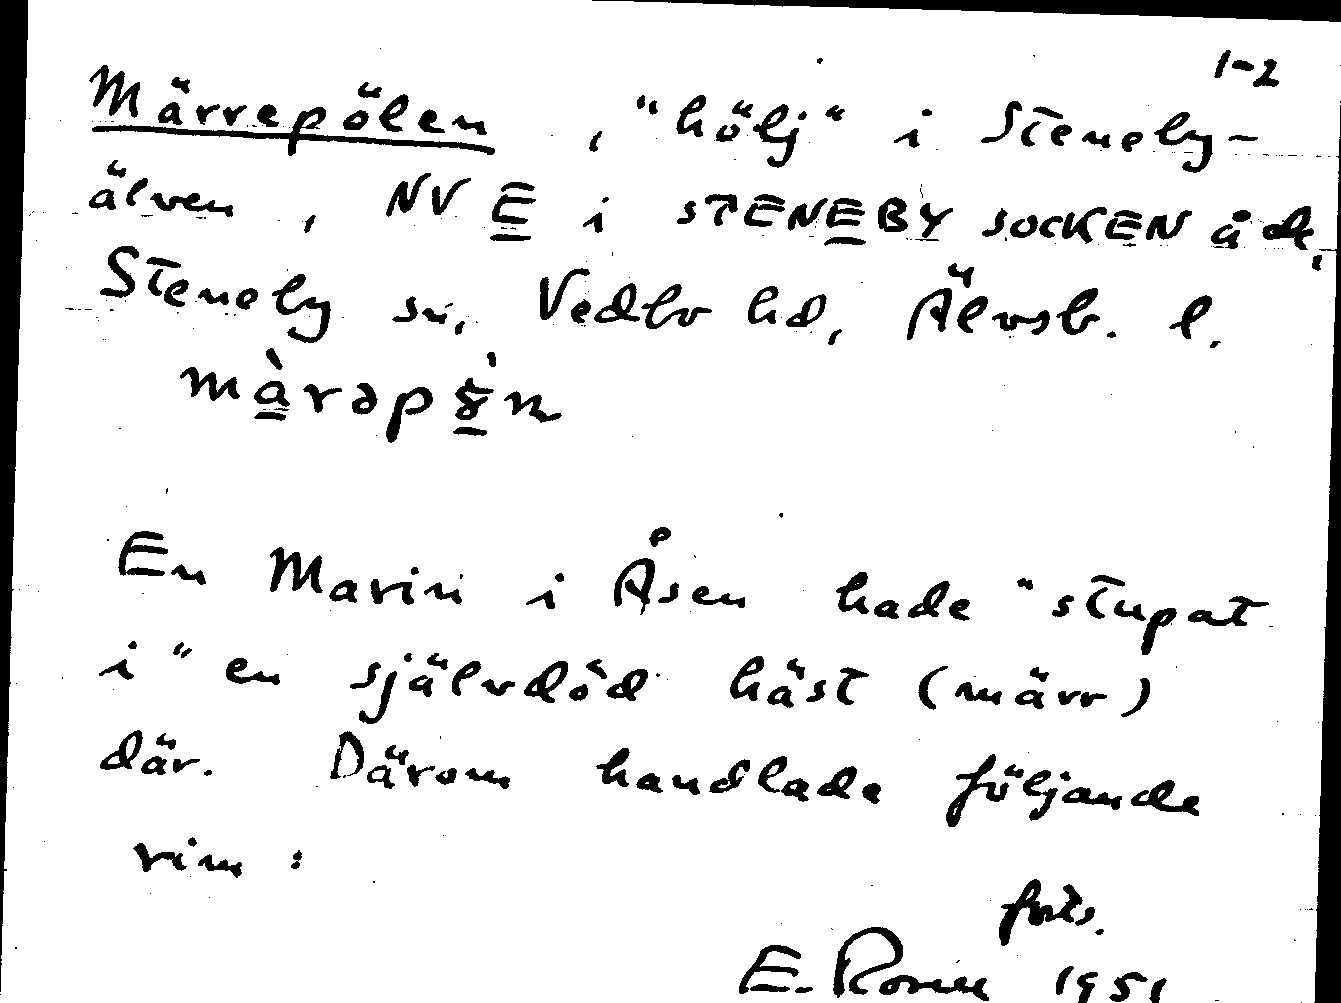 1-2
Märrepölen, "hölj" i Steneby-
älven, NV E i STENEBY SOCKEN å ek,
Steneby sn, Vedbo hd, Älvsb. l.
En Marin i Åsen hade "stupat
i" en självdöd häst (märr)
där. Därom handlade följande
rim:
forts.
E. Rosell 1951